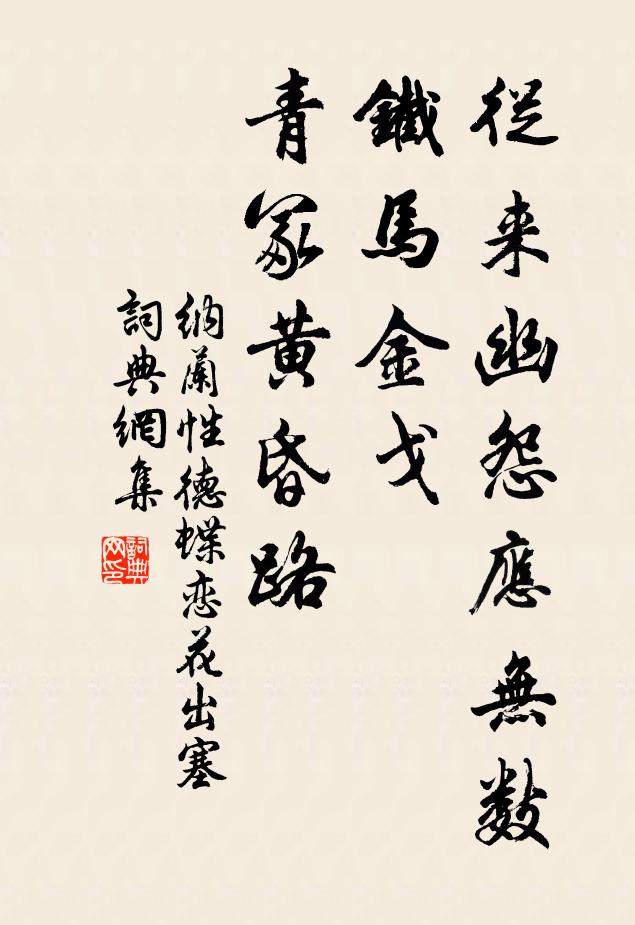 從来幽怨應無數
鐵馬金戈
青冢黄昏路
納蘭性德蝶恋花出塞
詞典網集
詞典
网印